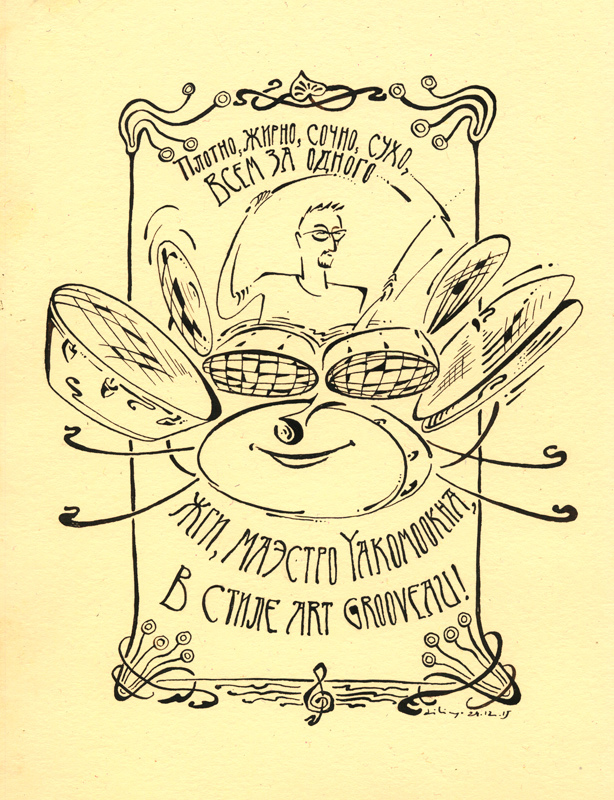 Плотно, жирно, сочно, сухо,
всем за одного
Жги, маэстро Yakomookha,
в стиле Art Grooveau!
24.12.15